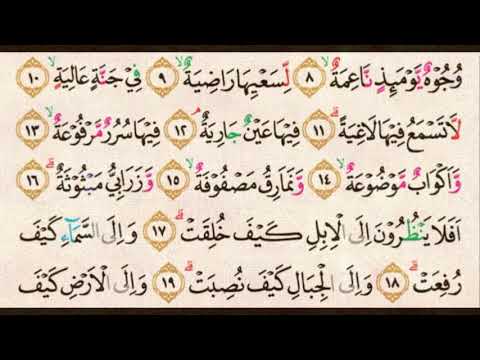 وُجُوْهٌ يَّوْمَىِٕذٍ نَّاعِمَةٌ ۙ ٨ لِّسَعْيِهَا رَاضِيَةٌ ۙ ٩ فِيْ جَنَّةٍ عَالِيَةٍ ۙ ١٠
لَّا تَسْمَعُ فِيْهَا لَاغِيَةً ۗ ١١ فِيْهَا عَيْنٌ جَارِيَةٌ ۘ ١٢ فِيْهَا سُرُرٌ مَّرْفُوْعَةٌ ۙ ١٣
وَّاَكْوَابٌ مَّوْضُوْعَةٌ ۙ ١٤ وَّنَمَارِقُ مَصْفُوْفَةٌ ۙ ١٥ وَّزَرَابِيُّ مَبْثُوْثَةٌ ۗ ١٦
اَفَلَا يَنْظُرُوْنَ اِلَى الْاِبِلِ كَيْفَ خُلِقَتْ ۗ ١٧ وَاِلَى السَّمَاۤءِ كَيْفَ
رُفِعَتْ ۗ ١٨ وَاِلَى الْجِبَالِ كَيْفَ نُصِبَتْ ۗ ١٩ وَاِلَى الْاَرْضِ كَيْفَ